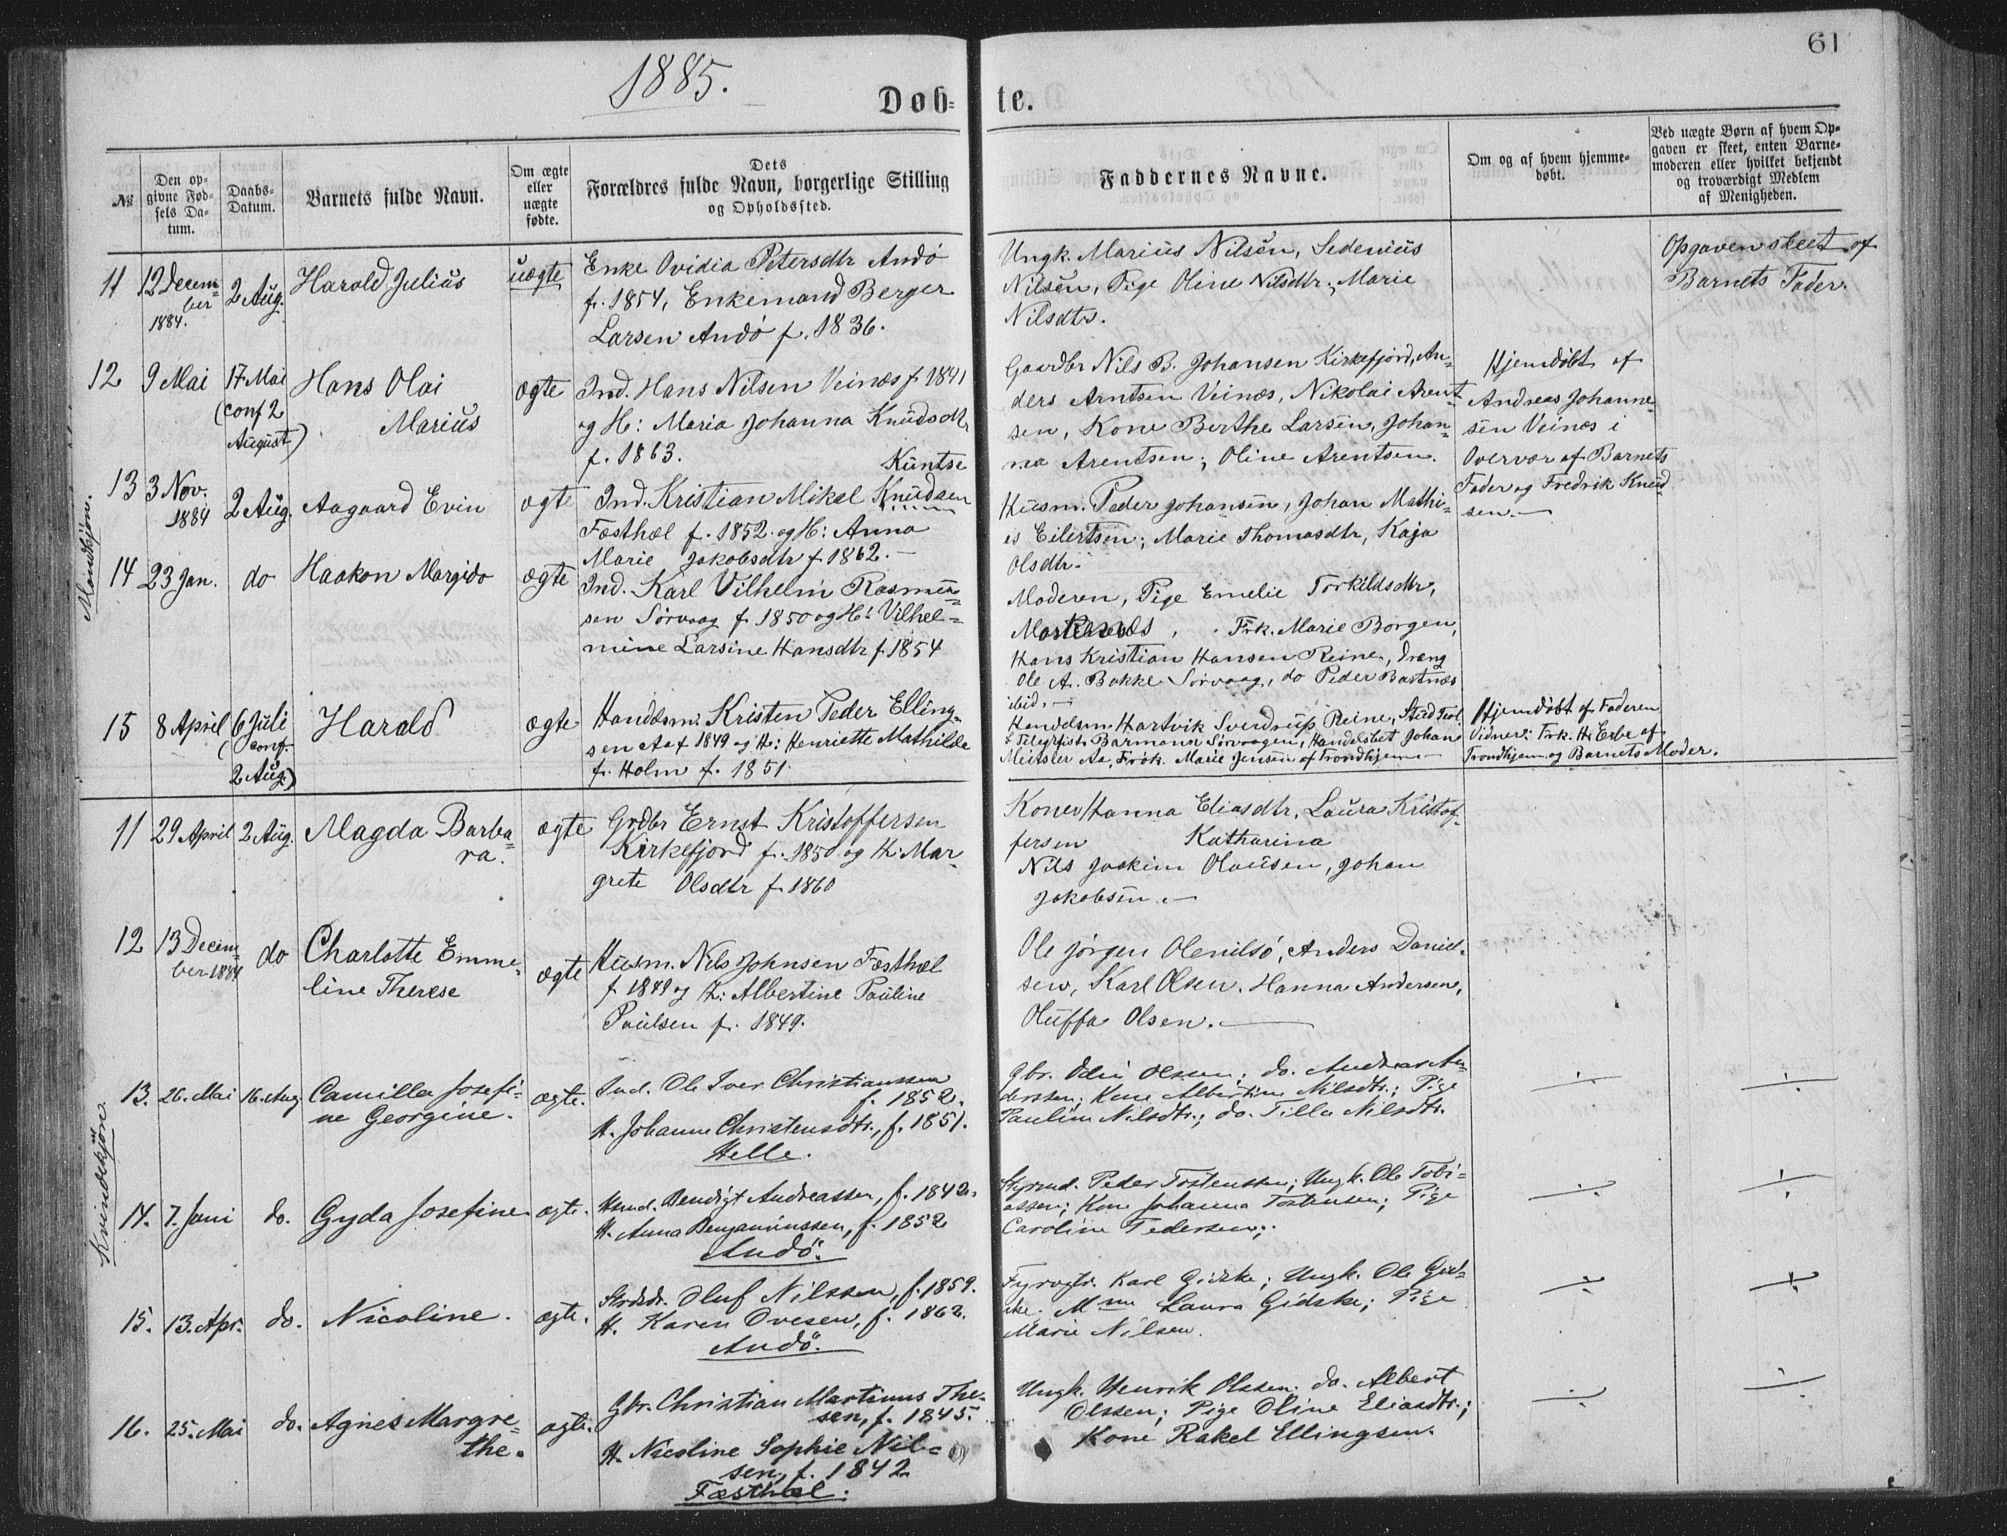 61
1885.
Døb- te.
№
Den opgivne Fødsels Datum.
Daabs-Datum.
Barnets fulde Navn.
Om ægte eller uægte fødte.
Dets Forældres fulde Navn, borgerlige Stilling og Opholdssted.
Faddernes Navne.
Om og af hvem hjemmedøbt.
Ved uægte Børn af hvem Opgaven er skeet, enten Barnemoderen eller hvilket bekjendt og troværdigt Medlem af Menigheden.
Mandkjön.
11 12 Decem-
ber
1884.
2 Aug.
Harald Julius
uægte
Enke Ovidia Petersdtr Andö
f. 1854, Enkemand Berger
Larsen Andö f. 1836.
Ungk. Marius Nilsen, Sedenius
Nilsen, Pige Oline Nilsdtr., Marie
Nilsdtr.
Opgaven skeet af
Barnets Fader.
12 9 Mai
17 Mai
(conf 2
August)
Hans Olai
Marius
ægte
Ind. Hans Nilsen Veinæs f. 1841
og H: Maria Johanna Knudsdtr
f. 1863.
Gaardbr Nils B. Johansen Kirkefjord, An-
ders Arntsen Veinæs, Nikolai Arent-
sen, Kone Berthe Larsen, Johan-
na Arentsen; Oline Arentsen.
Hjemdöbt af
Andreas Johanne-
sen Veinæs i
Overvær af Barnets
Fader og Fredrik Knud-
sen.
13 3 Nov.
1884
2 Aug.
Aagaard Evin
ægte
Kuntse
Ind. Kristian Mikel Knudsen
Fæsthæl f. 1852. og H: Anna
Marie Jakobsdtr f. 1862.
Husm. Peder Johansen, Johan Mathi-
es Eilertsen; Marie Thomasdtr, Kaja
Olsdtr.
14 23 Jan.
do
Haakon Margido
ægte
Ind. Karl Vilhelm Rasmus-
sen Sörvaag f. 1850 og H: Vilhel-
mine Larsine Hansdtr f. 1854
Moderen, Pige Emelie Torkildsdtr,
Frk. Marie Borgen,
Hans Kristian Hansen Reine, Dreng
Ole A. Bakke Sörvaag, do Peder Bastnæs
ibid.
15 8 April
6 Juli
(conf.
2 Aug.)
Harald
ægte
Handelsm. Kristen Peder Elling-
sen Aa f 1849 og H: Henriette Mathilde
f. Holm f. 1851.
Handelsm Hartvik Sverdrup Reine, Stud
Barmann Sörvaagen, Handelsbet Johan
Meitsler Aa, Frök. Marie Jensen af Trondhjem
Hjemdöbt af Faderen
Vidner: Frk. H. Erbe af
Trondhjem og Barnets Moder.
Kvindekjön.
11 29 April
2 Aug.
Magda Barba-
ra.
ægte
Grdbr Ernst Kristoffersen
Kirkefjord f. 1850 og H: Mar-
grete Olsdtr f. 1860
Koner Hanna Eliasdtr, Laura Kristof-
fersen Katharina
Nils Joakim Olausen, Johan
Jakobsen.
12 13 Decem-
ber 1884
do
Charlotte Emme-
line Therese
ægte
Husm. Nils Johnsen Fæsthæl
f. 1849 og H: Albertine Pauline
Paulsen f. 1849.
Ole Jörgen Olenilsö, Anders Daniel-
sen, Karl Olsen. Hanna Andersen,
Oluffa Olsen.
13. 26. Mai
16. Aug.
Camilla Josefi-
ne Georgine.
ægte.
Ind. Ole Iver Christianssen
f. 1852.
H. Johanne Christensdtr., f. 1851.
Helle.
Gbr. Odin Olsen; do. Andreas An-
derssen; Kone Albertine Nilsdtr.; Pige
Pauline Nilsdtr.; do. Tilla Nilsdtr.
14. 7. Juni
do.
Gyda Josefine
ægt.
Bendigt Andreassen, f. 1842.
H. Anna Benjaminssen, f. 1852
Andö.
Peder Tostenssen; Ungk. Ole Tobi-
assen; Kone Johanna Tostensen; Pige
Caroline Pedersen;
15. 13. Apr.
do.
Nicoline.
ægte.
Oluf Nilssen, f. 1859.
H. Karen Ovesen, f. 1862.
Andö.
Fyrvgtr. Karl Gidske; Ungk. Ole Gid-
ske. Mm Laura Gidske; Pige
Marie Nilsen.
16. 25. Mai
do.
Agnes Margre-
the.
ægte.
Gbr. Christian Martinus The-
sen, f. 1845.
H. Nicoline Sophie Nil-
sen, f. 1842
Fæsthæl.
Ungk. Henrik Olssen. do. Albert
Olssen; Pige Oline Eliasdtr.;
Kone Rakel Ellingsen.